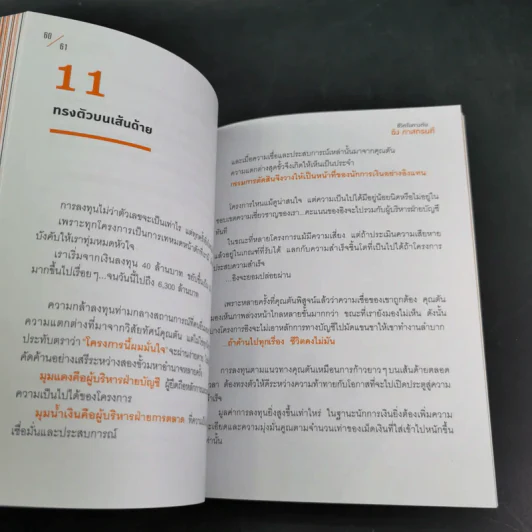 60
61
11
ทรงตัวบนเส้นด้าย
การลงทุนไม่ว่าตัวเลขจะเป็นเท่าไร
เพราะทุกโครงการเป็นการเทหมดหน้าตัก
บังคับให้เราทุ่มหมดหัวใจ
เราเริ่มจากเงินลงทุน 40 ล้านบาท ขยับขึ้น
มากขึ้นไปเรื่อยๆ...จนวันนี้ไปถึง 6,300 ล้านบาท
ความกล้าลงทุนท่ามกลางสถานการณ์
ความแตกต่างที่มาจากวิสัยทัศน์คุณตัน
ประทับตราว่า 'โครงการนี้ผมมั่นใจ' จะผ่าน
คัดค้านอย่างเสรีระหว่างสองขั้วมหาอำนาจ
มุมแดงคือผู้บริหารฝ่ายบัญชี
ความเป็นไปได้ของโครงการ
มุมน้ำเงินคือผู้บริหารฝ่ายการตลาด
เชื่อมั่นและประสบการณ์
ชีวิตไม่ตัน
อิง ภาสกรนที
และเมื่อความเชื่อและประสบการณ์เหล่านั้นมาจากคุณตัน
ความแตกต่างสุดขั้วจึงเกิดให้เห็นเป็นประจำ
กรรมการตัดสินจึงวางให้เป็นหน้าที่ของนักการเงินอย่างอิงแทน
โครงการไหนแม้ดูน่าสนใจ แต่ความเป็นไปได้มีอยู่น้อยนิดหรือไม่อยู่ใน
ขอบเขตความเชี่ยวชาญของเรา...คะแนนของอิงจะไปรวมกับผู้บริหารฝ่ายบัญชี
ทันที
ในขณะที่หลายโครงการแม้มีความเสี่ยง แต่ถ้าประเมินความเสียหาย
แล้วอยู่ในเกณฑ์ที่รับได้ แลกกับความสำเร็จชั้นโตที่เป็นไปได้ถ้าโครงการ
ประสบความสำเร็จ
...อิงจะยอมปล่อยผ่าน
เพราะหลายครั้งที่คุณตันพิสูจน์แล้วว่าความเชื่อของเขาถูกต้อง คุณตัน
มองเห็นการณ์ไกล
ถ้าค้านไปทุกเรื่อง ชีวิตคงไม่มัน
การลงทุนตามแนวทางคุณตันเหมือนการก้าวยาวๆ บนเส้นด้ายตลอด
ต้องทรงตัวให้ดีระหว่างความท้าทายกับโอกาสที่จะไปเปิดประตูสู่ความ
มูลค่าการลงทุนยิ่งสูงขึ้นเท่าไหร่ ในฐานะนักการเงินยิ่งต้องเพิ่มความ
ละเอียดและความมุ่งมั่นคูณตามจำนวนเท่าของเม็ดเงินที่ใส่เข้าไปหนักขึ้น
เท่านั้น